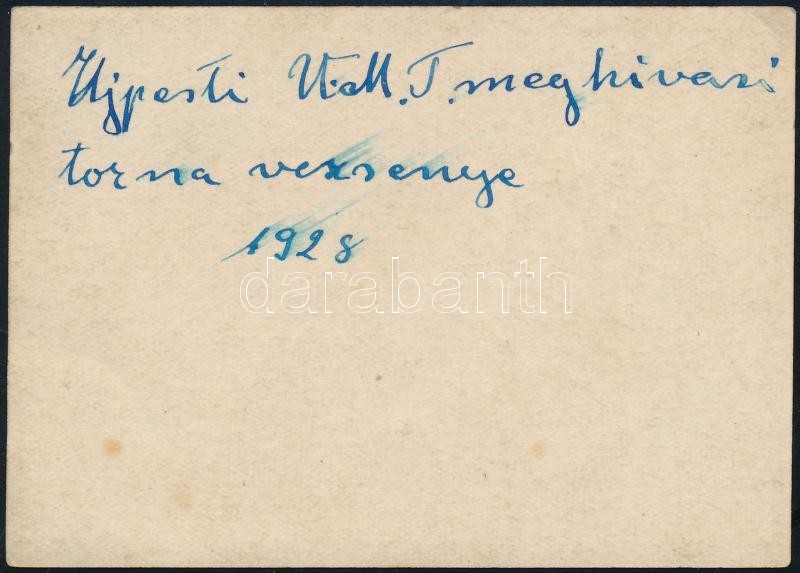 Ujpesti V.M.T. meghivasi
torna versenye
1928
darabanth